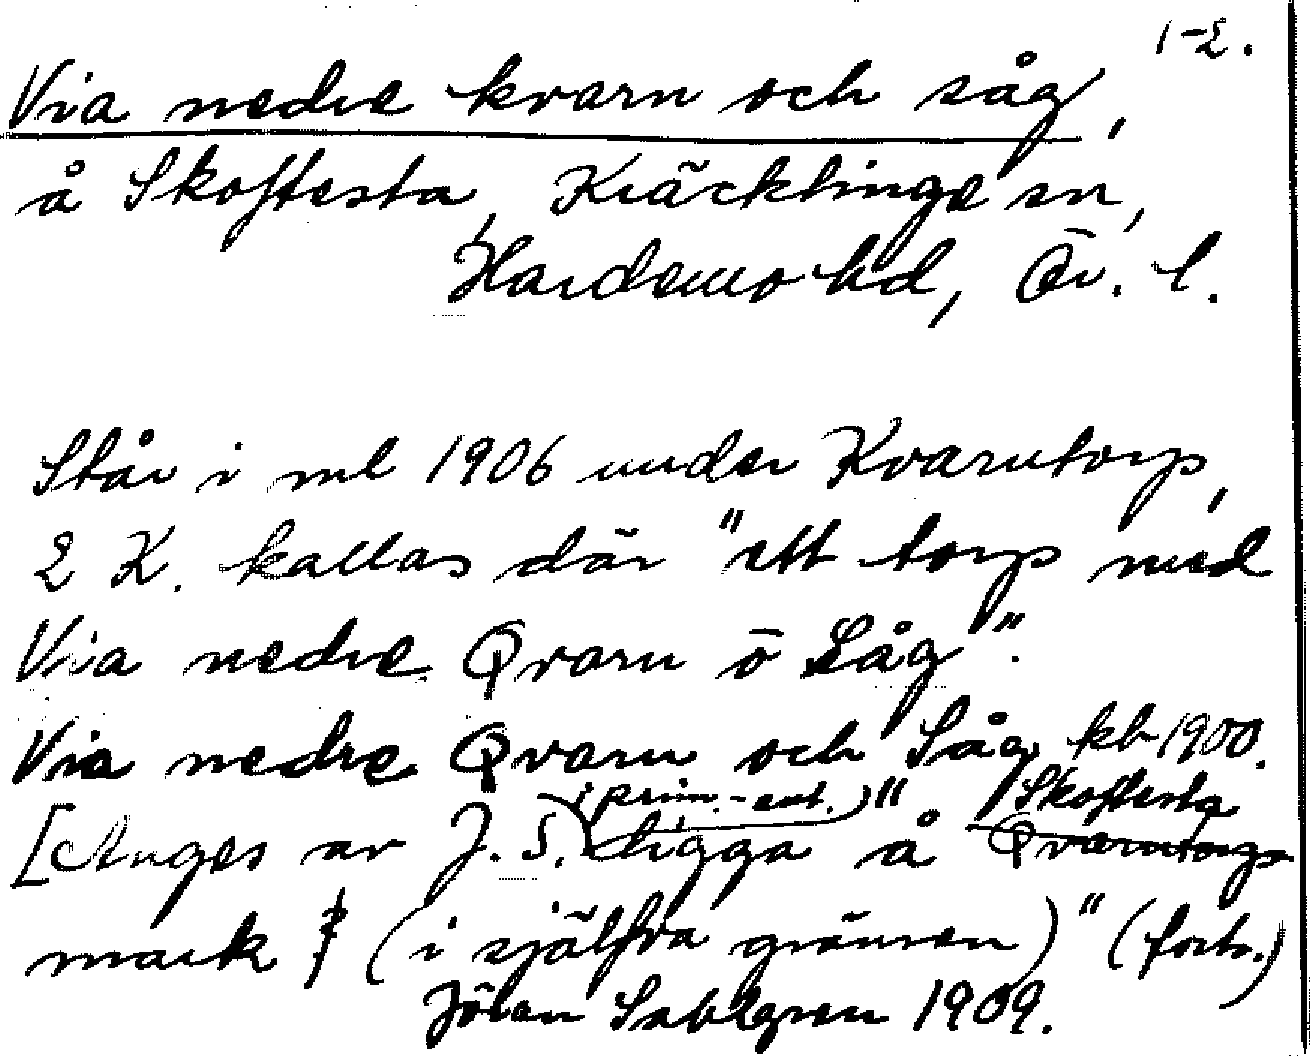 1-2.
Via nedre kvarn och såg,
å Skoftesta, Kräcklinge sn,
Hardemo hd, Ör. l.
Står i ml 1906 under Kvarntorp,
2 K. kallas där "ett torp med
Via nedre Qvarn ō Såg".
Via nedre Qvarn och Såg kb 1900.
(prim.-ant.)" Skoftesta
[Anges av J. S. ligga å Qvarntorps
mark (i själfva gränsen)" (forts.)
Jöran Sahlgren 1909.